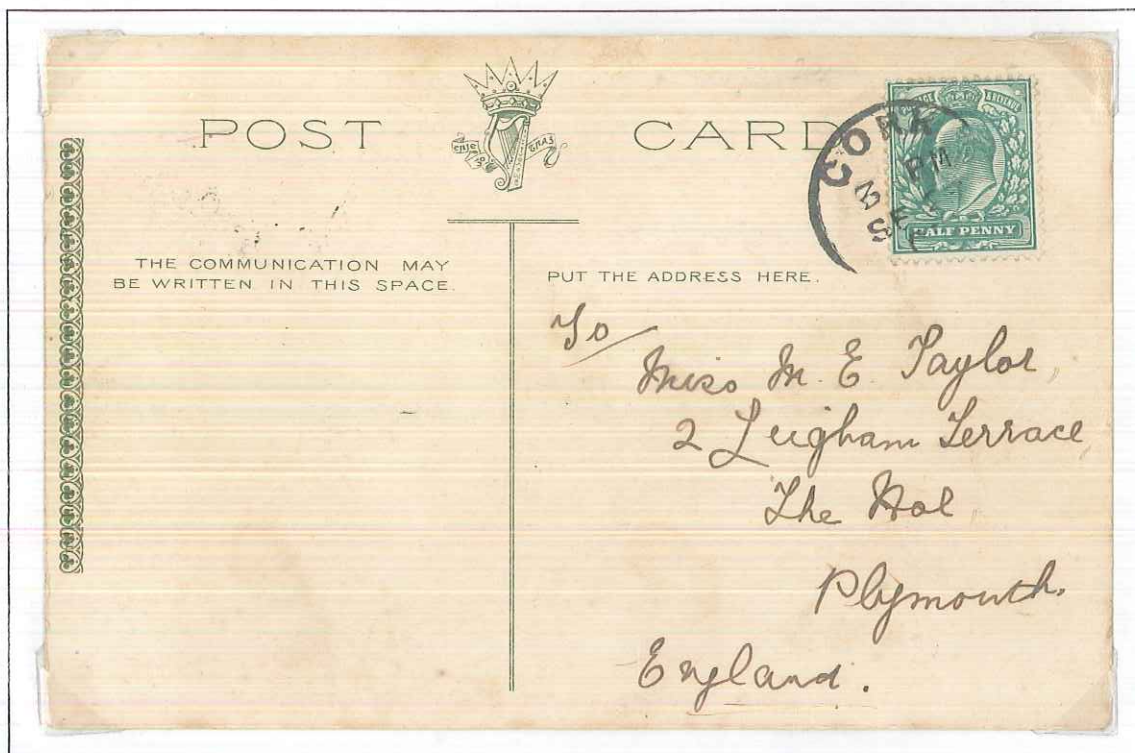 POST CARD
POSTAGE & REVENUE
CORK
PM
SE
HALF PENNY
THE COMMUNICATION MAY
BE WRITTEN IN THIS SPACE.
PUT THE ADDRESS HERE.
To/
Miss M. E. Taylor,
2 Leigham Terrace,
The Hoe
Plymouth.
England.